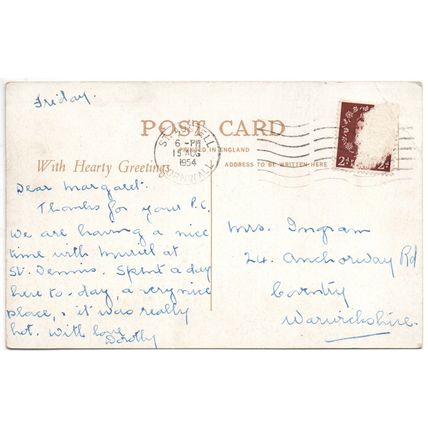 Friday.
POST CARD
ST. AUSTELL
6 - PM
15 AUG
1954
CORNWALL
PRINTED IN ENGLAND
With Hearty Greetings
ADDRESS TO BE WRITTEN HERE
2½d
Dear Margaret.
Thanks for your P.C.
We are having a nice
time with Muriel at
St. Dennis. Spent a day
here to-day, a very nice
place, & it was really
hot. With love
Dorothy
Mrs. Ingram
24. Anchorway Rd
Coventry
Warwickshire.